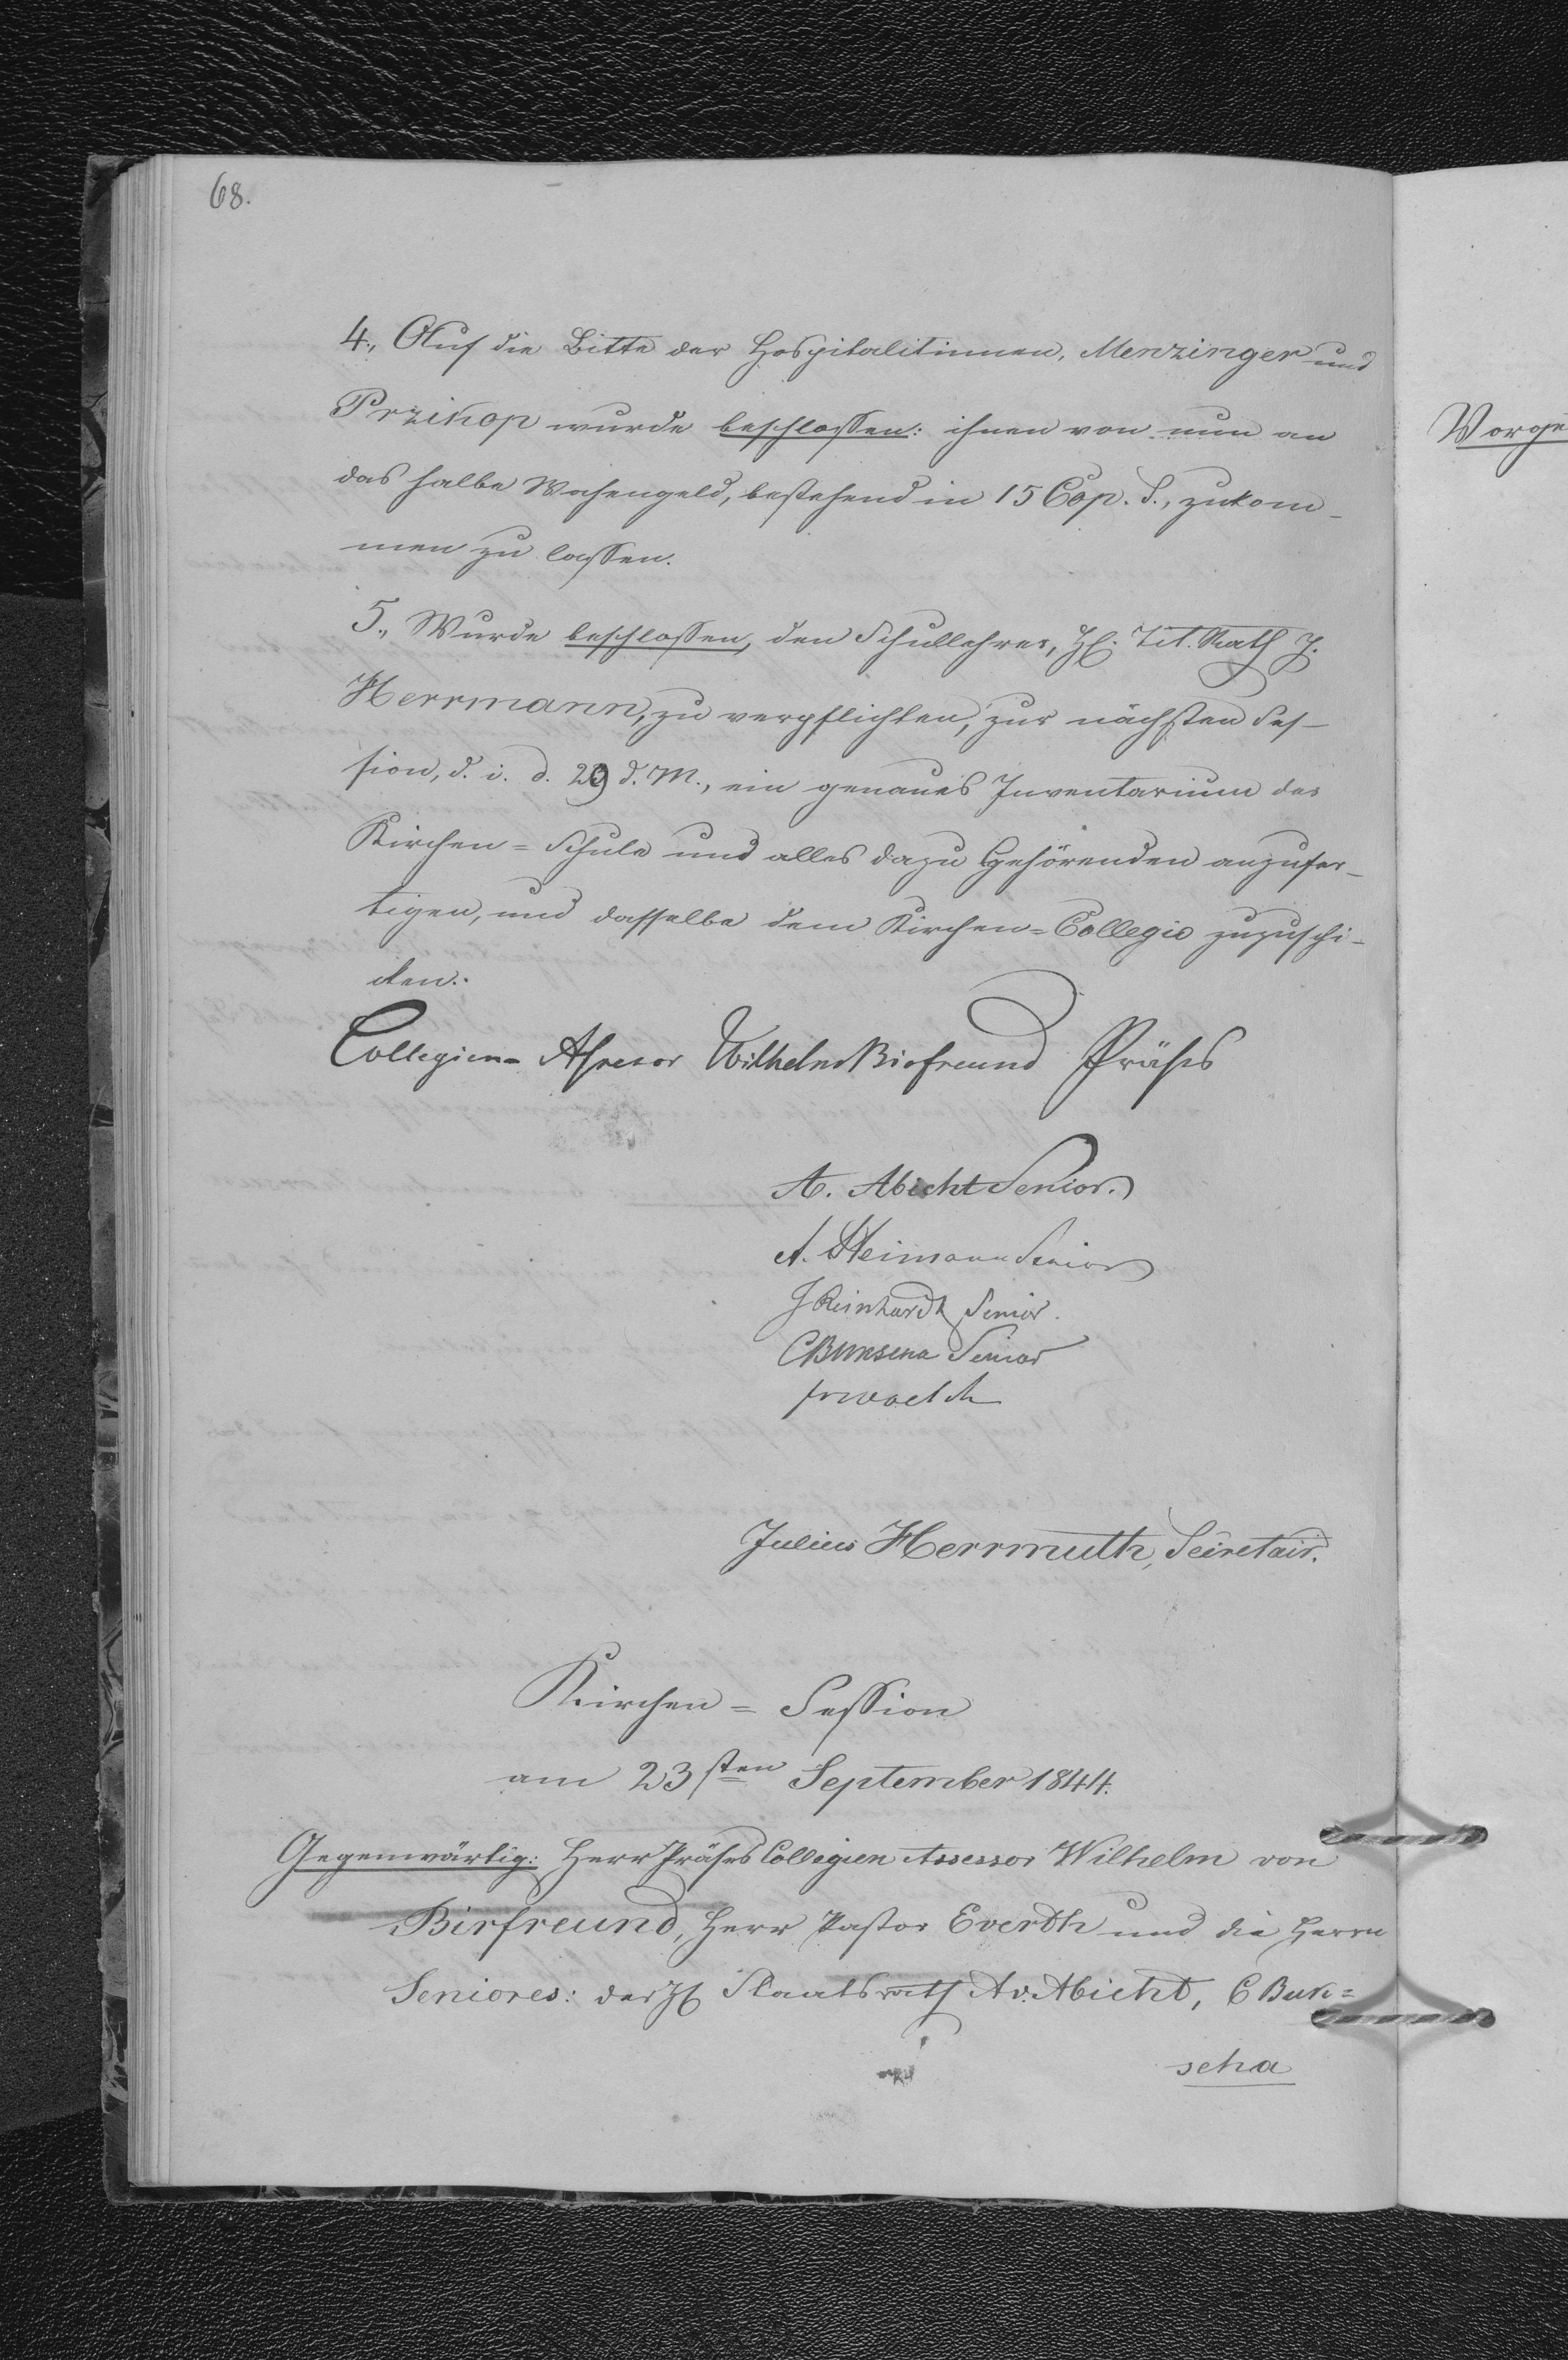 68.
4., Auf die Bitte der Hospitalitinnen, Menzinger und
Przikop wurde beschlossen: ihnen von nun an
das halbe Wochengeld, bestehend in 15 Cop. S., zukom-
men zu lassen.
5., Wurde beschlossen, den Schullehrer, H. Tit. Rath J.
Herrmann, zu verpflichten, zur nächsten Ses-
sion, d. i. d. 29 d. M., ein genaues Inventarium der
Kirchen=Schule und alles dazu Gehörenden anzufer-
tigen, und dasselbe dem Kirchen=Collegio zuzuschi-
cken.
Collegien-Assessor Wilhelm Birfreund Präses
A. Abicht Senior.
A. Heimann Senior
J Reinhardt Senior.
Senior
Julius Herrmuth, Secretair.
Kirchen=Session
am 23sten September 1844.
Gegenwärtig: Herr Präses Collegien Assessor Wilhelm von
Birfreund, Herr Pastor Everth und die Herrn
Seniores: der H Staatsrath A v. Abicht, C Buk=
scha
Vorge